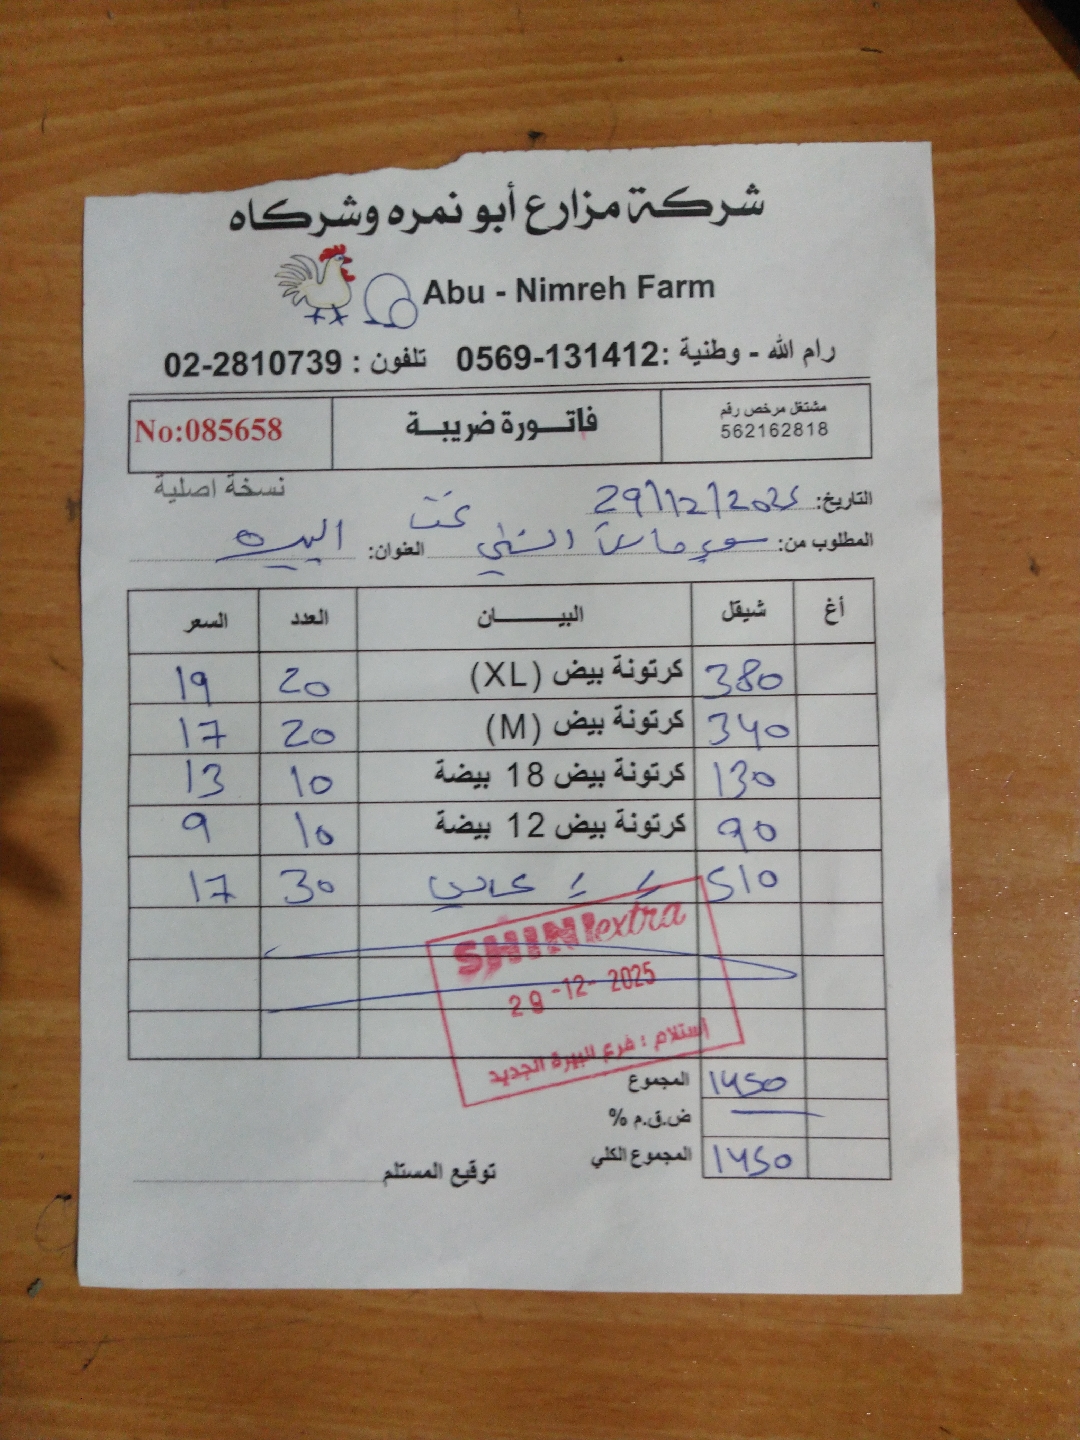 شركة مزارع أبو نمره وشركاه
Abu - Nimreh Farm
رام الله - وطنية :0569-131412 تلفون : 02-2810739
مشتغل مرخص رقم
562162818
فاتـــورة ضريبـــة
No:085658
نسخة اصلية
التاريخ: 29/12/2025
المطلوب من: العنوان: البيره
أغ شيقل البيـــــــان العدد السعر
380 كرتونة بيض (XL) 20 19
340 كرتونة بيض (M) 20 17
130 كرتونة بيض 18 بيضة 10 13
90 كرتونة بيض 12 بيضة 10 9
510 30 17
SHINIextra
29-12-2025
استلام : فرع البيرة الجديد
المجموع 1450
ض.ق.م %
المجموع الكلي 1450
توقيع المستلم